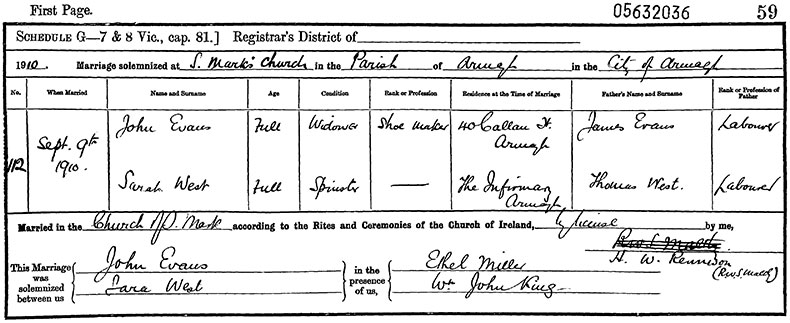 First Page. 05632036 59
SCHEDULE G—7 & 8 Vic., cap. 81.] Registrar's District of
1910. Marriage solemnized at S. Mark's Church in the Parish of Armagh in the City of Armagh
No. When Married Name and Surname Age Condition Rank or Profession Residence at the Time of Marriage Father's Name and Surname Rank or Profession of Father
112 Sept. 9th 1910. John Evans Full Widower Shoe Maker 40 Callan St. Armagh James Evans Labourer
Sarah West Full Spinster — The Infirmary Armagh Thomas West. Labourer
Married in the Church of S. Mark according to the Rites and Ceremonies of the Church of Ireland, by license by me,
H. W. Rennison
This Marriage was solemnized between us John Evans in the presence of us, Ethel Miller
Sara West Wm John King